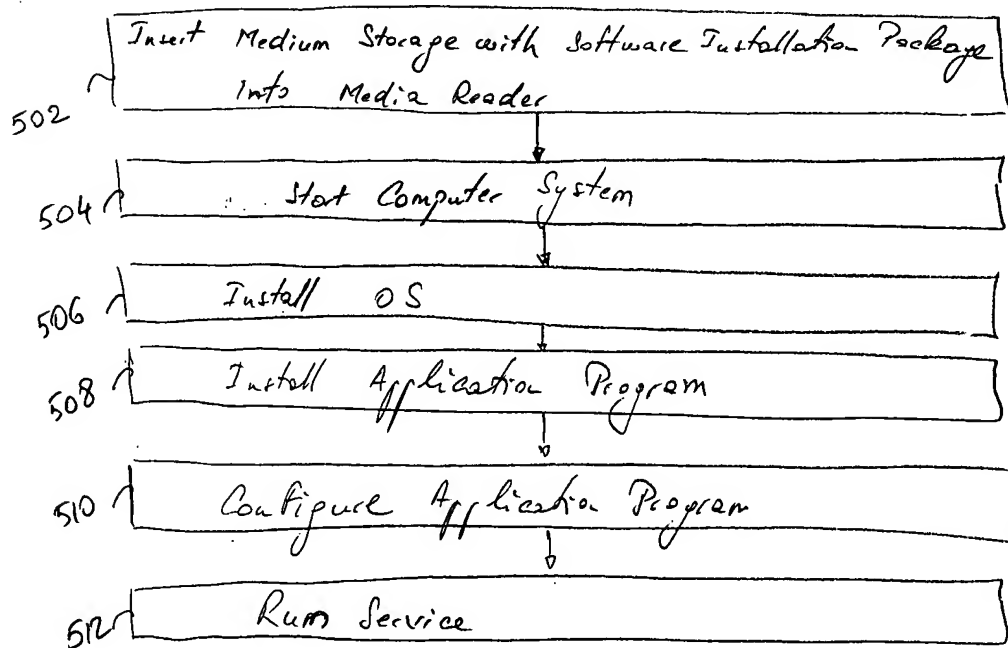 Insert Medium Storage with Software Installation Package
Into Media Reader
502
504
Start Computer System
506
Install OS
508
Install Application Program
510
Configure Application Program
512
Run Service